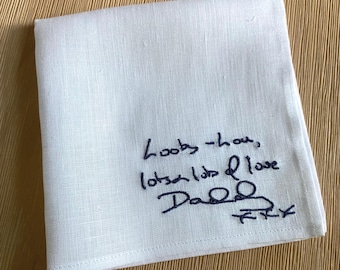 Looby-Lou,
lots & lots of love
Daddy
xxx